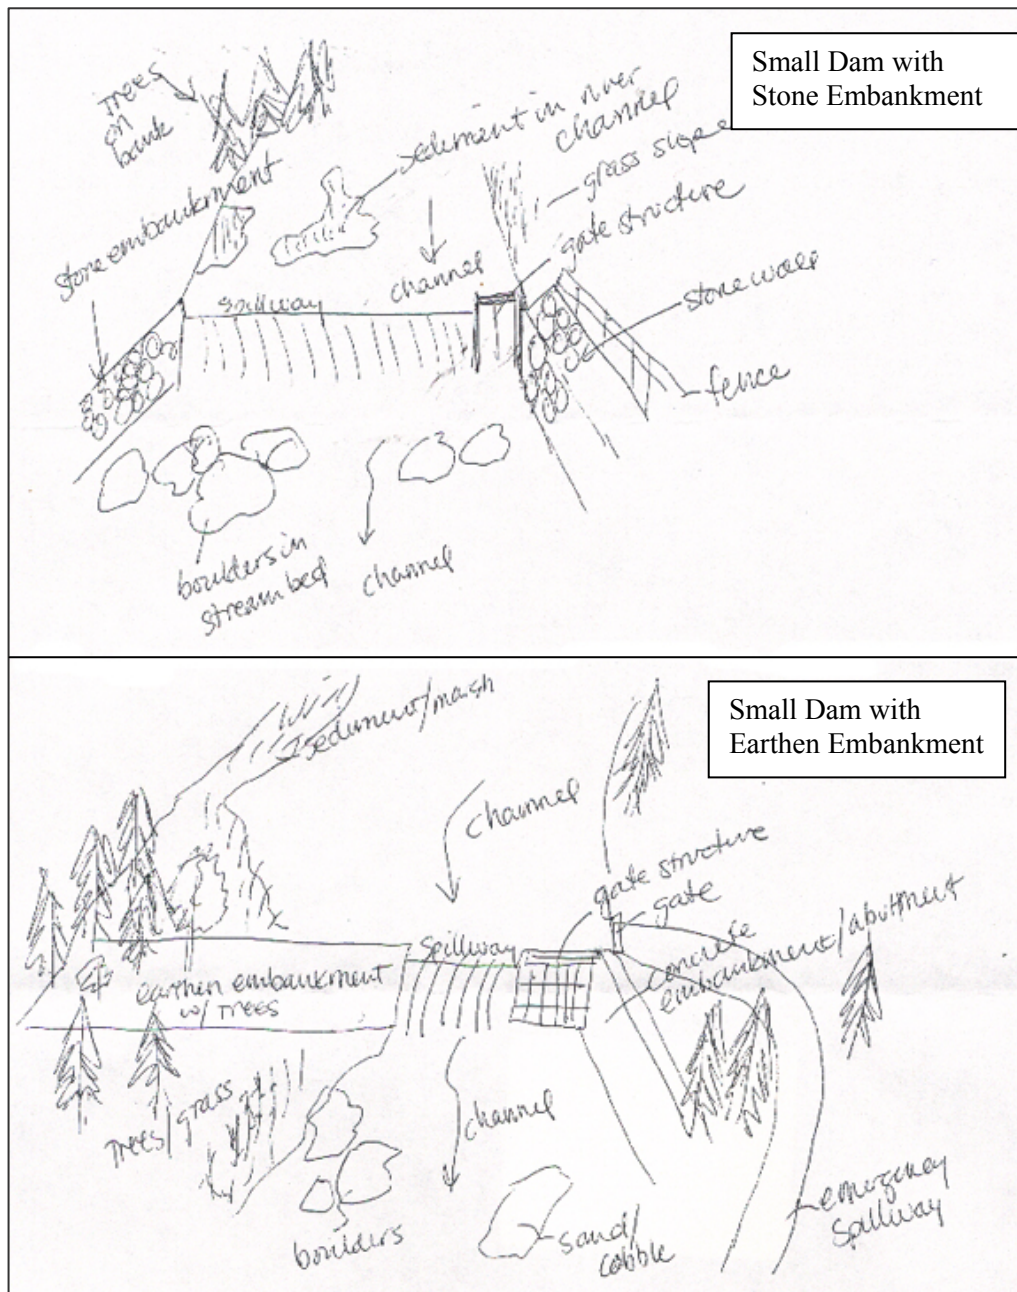 Small Dam with
Stone Embankment
Trees
on
bank
sediment in river
channel
grass slope
gate structure
stone embankment
channel
Spillway
stone wall
fence
boulders in
stream bed
channel
Small Dam with
Earthen Embankment
sediment/mash
channel
gate structure
gate
Concrete
embankment/abuttment
Spillway
earthen embankment
w/ Trees
Trees/grass
channel
boulders
sand/
cobble
emergency
Spillway